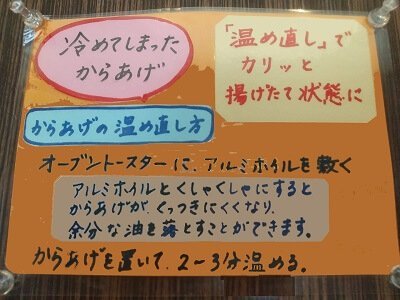 冷めてしまった
からあげ
「温め直し」で
カリッと
揚げたて状態に
からあげの温め直し方
オーブントースターに、アルミホイルを敷く
アルミホイルとくしゃくしゃにすると
からあげが、くっつきにくくなり、
余分な油を落とすことができます。
からあげを置いて、2~3分温める。